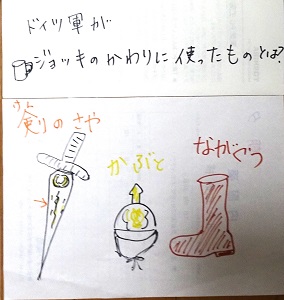 ドイツ軍が
ジョッキのかわりに使ったものとは?
けん
剣のさや
かぶと
ながぐつ